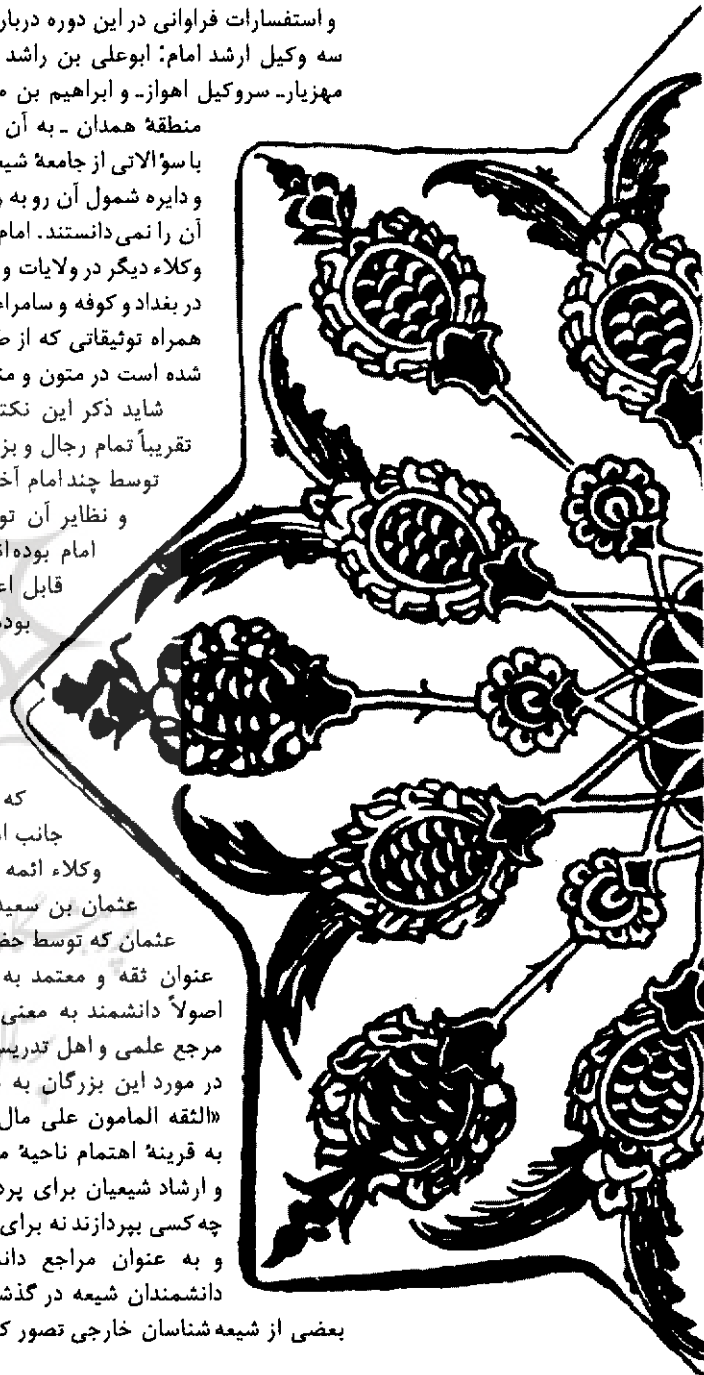 و استفسارات فراوانی در این دوره دربار
سه وکیل ارشد امام: ابوعلی بن راشد
مهزیار ـ سروکیل اهواز ـ و ابراهیم بن م
منطقهٔ همدان ـ به آن
با سؤالاتی از جامعهٔ شیع
و دایره شمول آن رو به ر
آن را نمی‌دانستند. امام
وکلاء دیگر در ولایات و
در بغداد و کوفه و سامراء
همراه توثیقاتی که از ط
شده است در متون و من
شاید ذکر این نکت
تقریباً تمام رجال و بز
توسط چند امام آخ
و نظایر آن تو
امام بوده‌ان
قابل اع
بوده
که
جانب ا
وکلاء ائمه
عثمان بن سعید
عثمان که توسط حض
عنوان ثقه و معتمد به
اصولاً دانشمند به معنی
مرجع علمی و اهل تدریس
در مورد این بزرگان به
«الثقه المامون علی مال
به قرینهٔ اهتمام ناحیهٔ م
و ارشاد شیعیان برای پرد
چه کسی بپردازند نه برای
و به عنوان مراجع دان
دانشمندان شیعه در گذش
بعضی از شیعه شناسان خارجی تصور ک